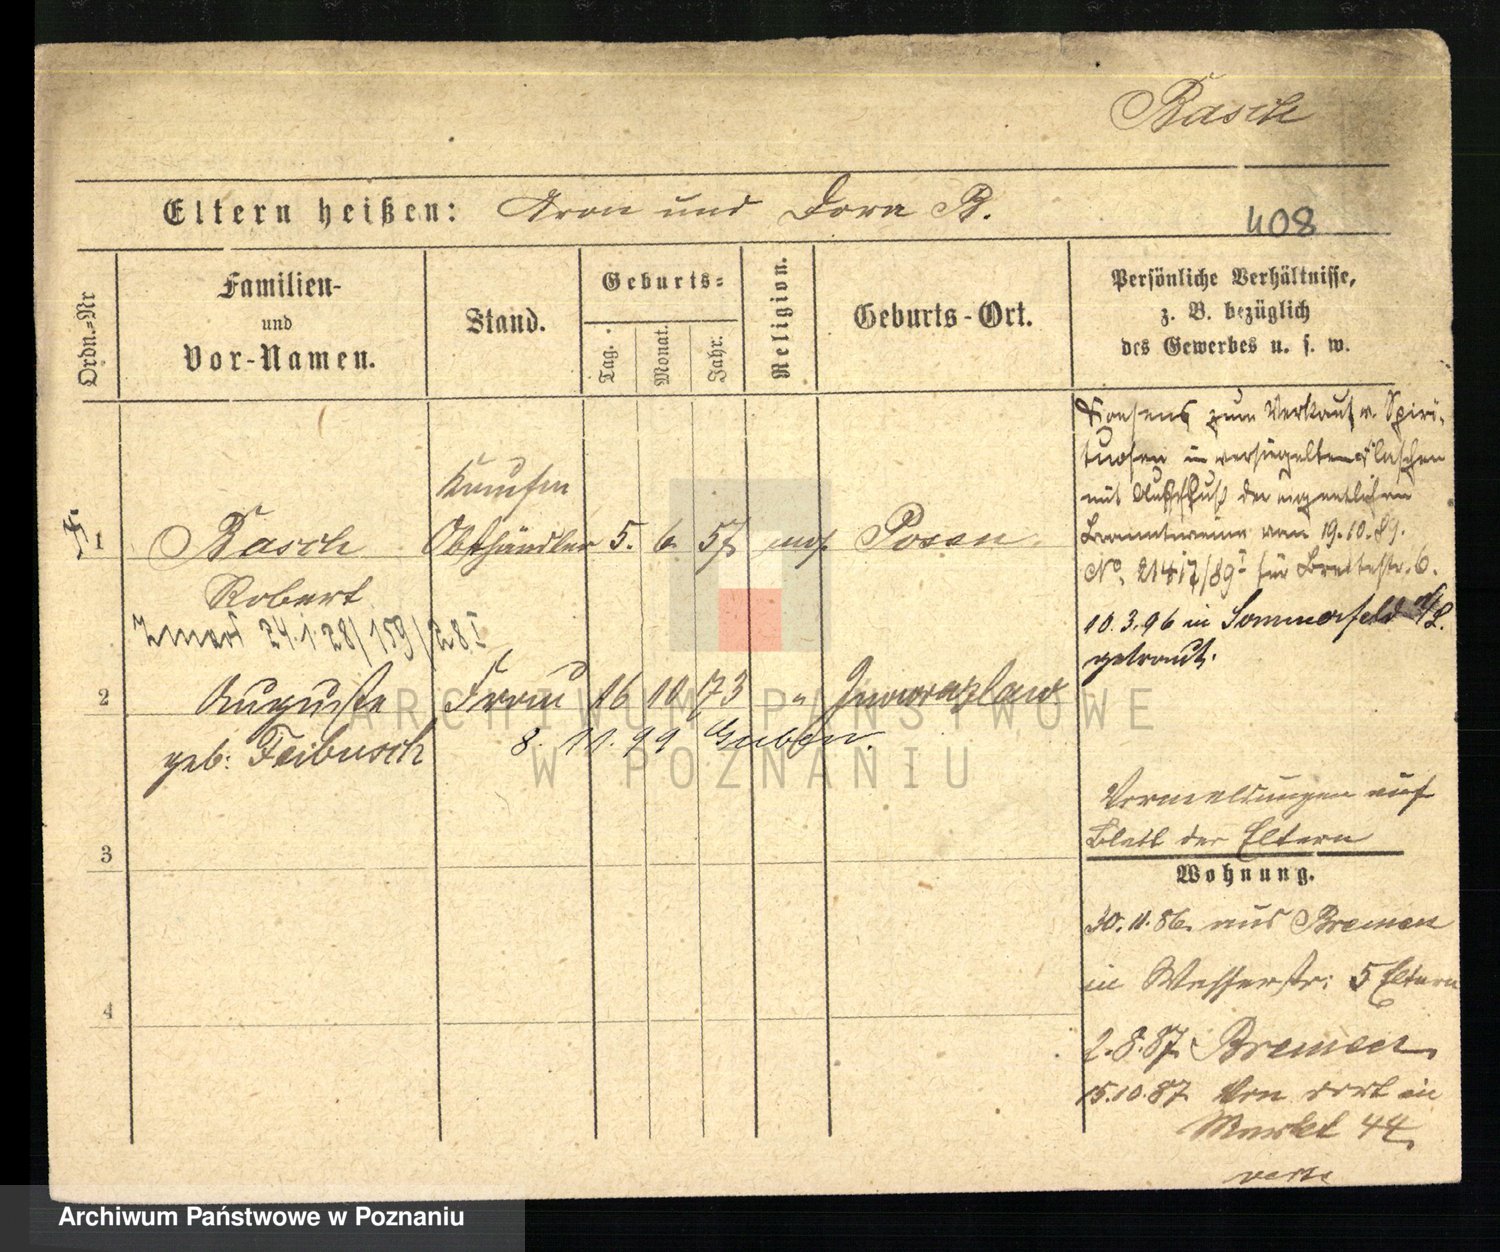 Basch
Eltern heißen: Aron und Dora B.
408
Ordn.-Nr
Familien-
und
Vor-Namen.
Stand.
Geburts-
Tag.
Monat.
Jahr.
Religion.
Geburts-Ort.
Persönliche Verhältnisse,
z. B. bezüglich
des Gewerbes u. s. w.
Konsens zum Verkauf v. Spiri-
tuosen in versiegelten Flaschen
mit Ausschluß der eigentlichen
Branntweine vom 19.10.89.
No. 21417/89 I für Breitestr. 6.
10.3.96 in Sommerfeld N/L.
getraut.
Kaufm
1 Basch Obsthändler 5. 6. 57 mos. Posen
Robert
Zmarł 24.1.28/159/28 I
2 Auguste Frau 16 10 73 " Inowrazlaw
geb: Feibusch 8. 11. 99 Guben.
3
4
Vermeldungen auf
Blatt der Eltern
Wohnung.
30.11.86. aus Bremen
in Wasserstr: 5 Eltern
2.8.87. Bremen
15.10.87 Von dort in
Markt 44.
verte
ARCHIWUM PAŃSTWOWE
W POZNANIU
Archiwum Państwowe w Poznaniu